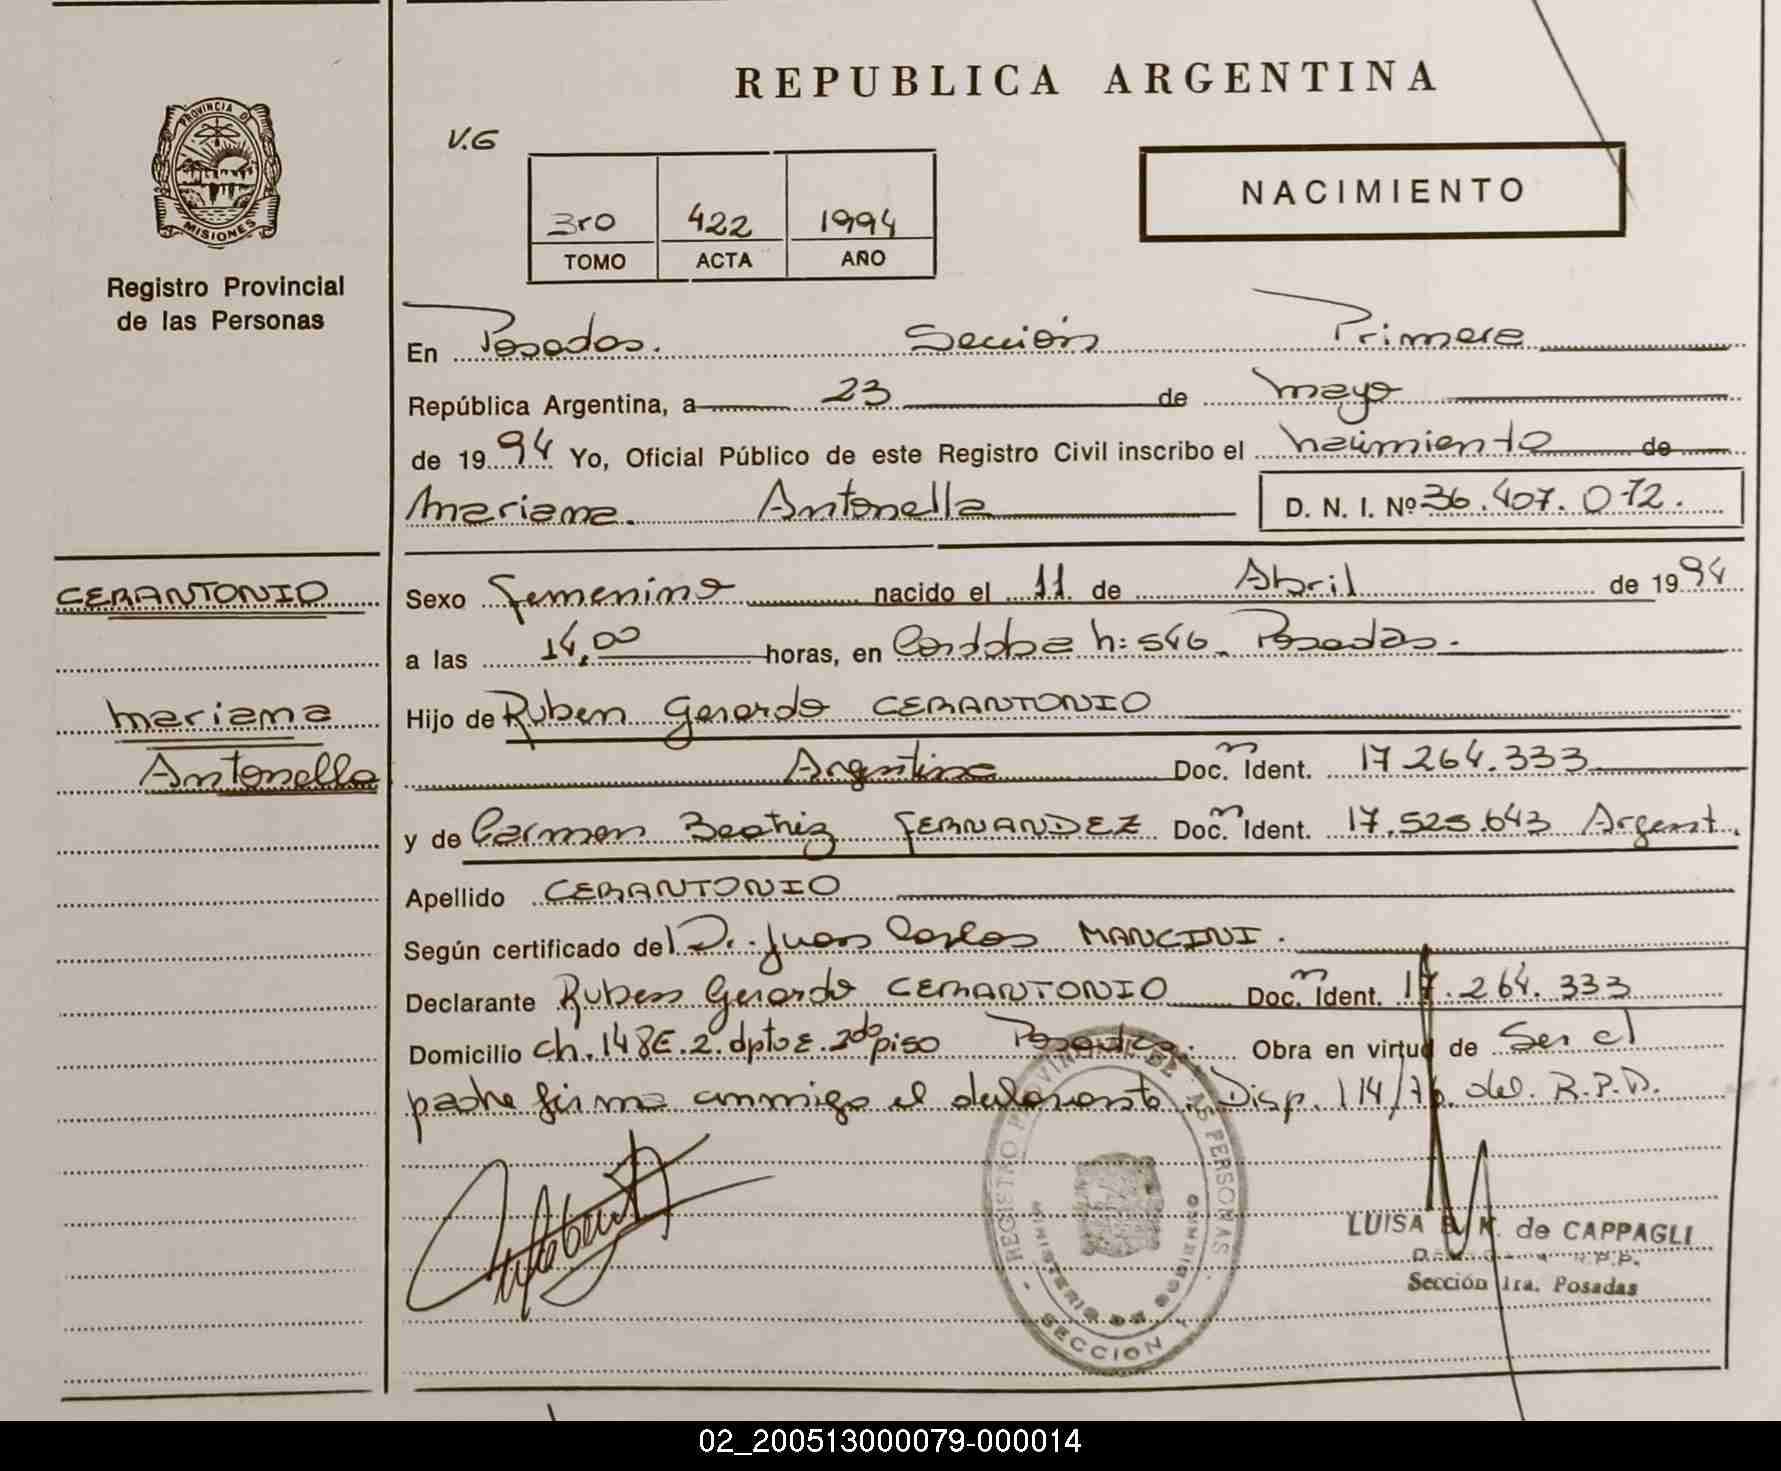 REPUBLICA ARGENTINA
PROVINCIA DE
MISIONES
Registro Provincial
de las Personas
V.G
3ro 422 1994
TOMO ACTA AÑO
NACIMIENTO
En Posadas. Sección Primera
República Argentina, a 23 de mayo
de 1994 Yo, Oficial Público de este Registro Civil inscribo el nacimiento de
Mariana Antonella D. N. I. Nº 36.407.072.
CERANTONIO
Mariana
Antonella
Sexo Femenino nacido el 11 de Abril de 1994
a las 14,00 horas, en Cordoba n: 546. Posadas.
Hijo de Ruben Gerardo CERANTONIO
Argentina Doc. m Ident. 17.264.333
y de Carmen Beatriz FERNANDEZ Doc. m Ident. 17.525.643 Argent.
Apellido CERANTONIO
Según certificado del Dr. Juan Carlos MANCINI.
Declarante Ruben Gerardo CERANTONIO Doc. m Ident. 17.264.333
Domicilio ch. 148 E.2. dpto E. 2do piso Posadas. Obra en virtud de Ser el
padre firma conmigo el declarante. Disp. 114/76. del. R.P.P.
REGISTRO PROVINCIAL DE LAS PERSONAS
MINISTERIO DE GOBIERNO
SECCION 1
LUISA B. K. de CAPPAGLI
R.P.P.
Sección 1ra. Posadas
02_200513000079-000014